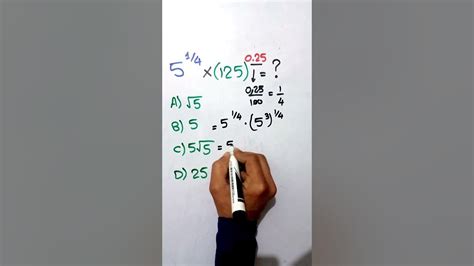 5^{1/4} × (125)^{0.25} = ?
↓
0,25/100 = 1/4
A) √5
B) 5 = 5^{1/4} · (5^3)^{1/4}
C) 5√5 = 5
D) 25